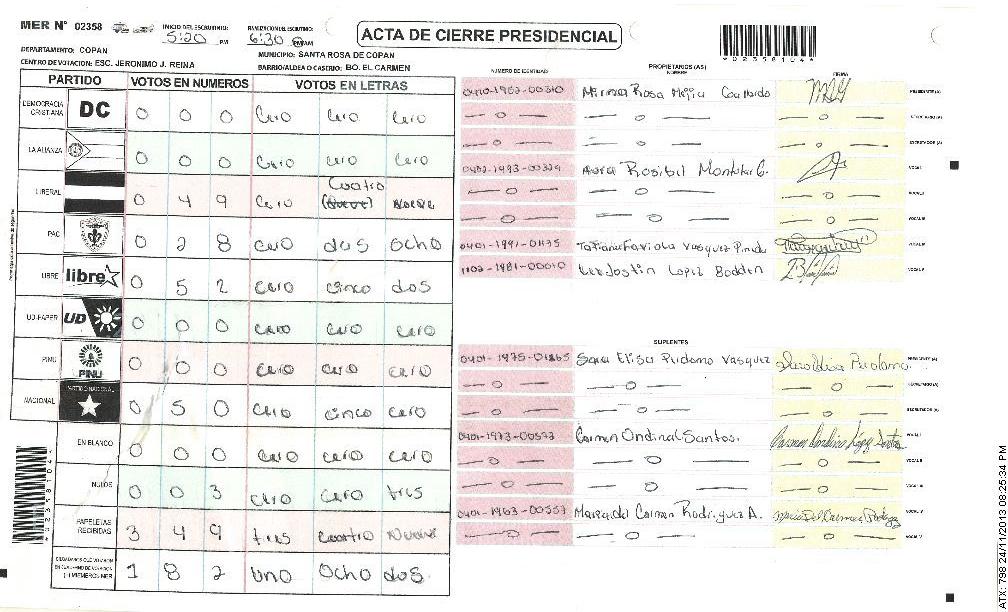 MER N° 02358
INICIO DEL ESCRUTINIO: 5:20 PM
FINALIZACION DEL ESCRUTINIO: 6:30 PM/AM
ACTA DE CIERRE PRESIDENCIAL
*02358104*
DEPARTAMENTO: COPAN
MUNICIPIO: SANTA ROSA DE COPAN
CENTRO DE VOTACION: ESC. JERONIMO J. REINA
BARRIO/ALDEA O CASERIO: BO. EL CARMEN
PARTIDO VOTOS EN NUMEROS VOTOS EN LETRAS
DEMOCRACIA CRISTIANA DC 0 0 0 Cero Cero Cero
LA ALIANZA 0 0 0 Cero Cero Cero
LIBERAL 0 4 9 Cero Cuatro Nueve
PAC 0 2 8 Cero dos ocho
LIBRE libre 0 5 2 Cero Cinco dos
UD-FAPER UD 0 0 0 Cero Cero Cero
PINU PINU 0 0 0 Cero Cero Cero
NACIONAL PARTIDO NACIONAL 0 5 0 Cero Cinco Cero
EN BLANCO 0 0 0 Cero Cero Cero
NULOS 0 0 3 Cero Cero tres
PAPELETAS RECIBIDAS 3 4 9 tres Cuatro Nueve
1 8 2 Uno Ocho dos
NUMERO DE IDENTIDAD PROPIETARIOS (AS) NOMBRE FIRMA
Rosa Mejia PRESIDENTE (A)
— 0 — — 0 — — 0 — SECRETARIO (A)
— 0 — — 0 — — 0 — ESCRUTADOR (A)
Rosibil VOCAL I
— 0 — — 0 — — 0 — VOCAL II
— 0 — — 0 — — 0 — VOCAL III
0401-1991-01135 Vasquez VOCAL IV
1102-1981-00010 Lopez Bodden VOCAL V
SUPLENTES
Sara Elisa Perdomo Vasquez PRESIDENTE (A)
— 0 — — 0 — — 0 — SECRETARIO (A)
— 0 — — 0 — — 0 — ESCRUTADOR (A)
0401-1973-00593 Carmen Ondina Santos. VOCAL I
— 0 — — 0 — — 0 — VOCAL II
— 0 — — 0 — — 0 — VOCAL III
0401-1963-00557 Maria del Carmen Rodriguez A. VOCAL IV
— 0 — — 0 — — 0 — VOCAL V
*02358104*
ATX: 798 24/11/2013 08:25:34 PM